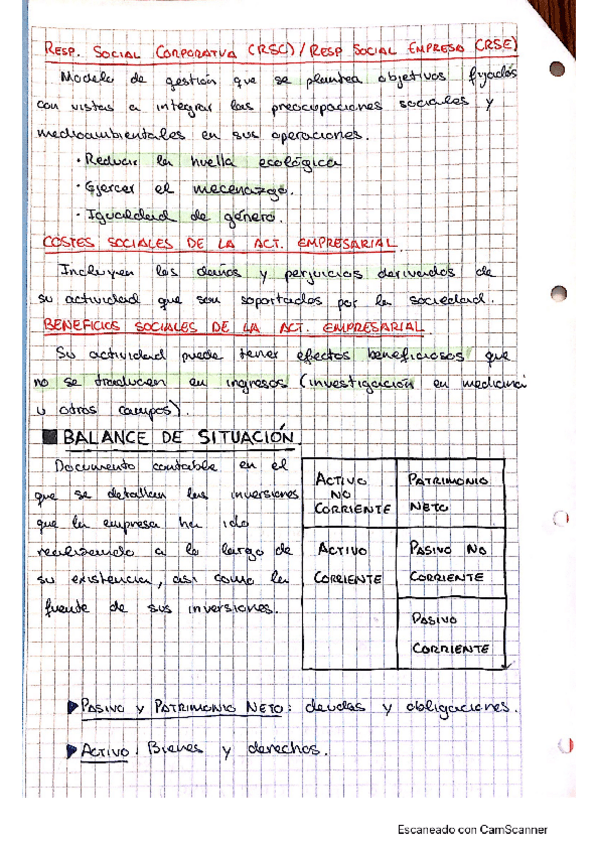 RESP. SOCIAL CORPORATIVA (RSC) / RESP SOCIAL EMPRESA (RSE)
Modelo de gestión que se plantea objetivos fijados
con vistas a integrar las preocupaciones sociales y
medioambientales en sus operaciones.
· Reducir la huella ecológica
· Ejercer el mecenazgo.
· Igualdad de género.
COSTES SOCIALES DE LA ACT. EMPRESARIAL
Incluyen los daños y perjuicios derivados de
su actividad que son soportados por la sociedad.
BENEFICIOS SOCIALES DE LA ACT. EMPRESARIAL.
Su actividad puede tener efectos beneficiosos que
no se traducen en ingresos (investigación en medicina
u otros campos).
BALANCE DE SITUACIÓN.
Documento contable en el
que se detallan las inversiones
que la empresa ha ido
realizando a lo largo de
su existencia, así como la
fuente de sus inversiones.
ACTIVO
NO
CORRIENTE
PATRIMONIO
NETO
ACTIVO
CORRIENTE
PASIVO NO
CORRIENTE
PASIVO
CORRIENTE
PASIVO Y PATRIMONIO NETO: deudas y obligaciones.
ACTIVO: Bienes y derechos.
Escaneado con CamScanner